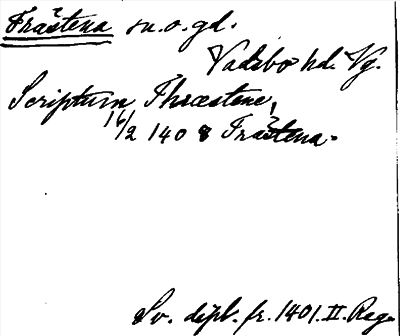 Fråstena sn. o. gd.
Vadsbo hd. Vg.
Scriptum Thræstene,
16/2 1408 Fråstena.
Sv. dipl. fr. 1401. II. Reg.